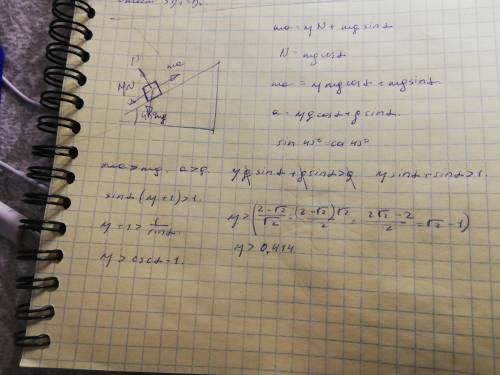 ma = μN + mg sinα
N = mgcosα
ma = μmgcosα + mg sinα
a = μgcosα + g sinα.
sin 45° = cos 45°
N
ma
μN
45°
mg
ma > mg. a > g. μg sinα + g sinα > g μ sinα + sinα > 1.
sinα (μ+1) > 1.
μ+1 > 1/sinα
μ > cscα - 1.
μ > ( (2-√2)/√2 = (2-√2)√2/2 = (2√2 - 2)/2 = √2 - 1 )
μ > 0,414